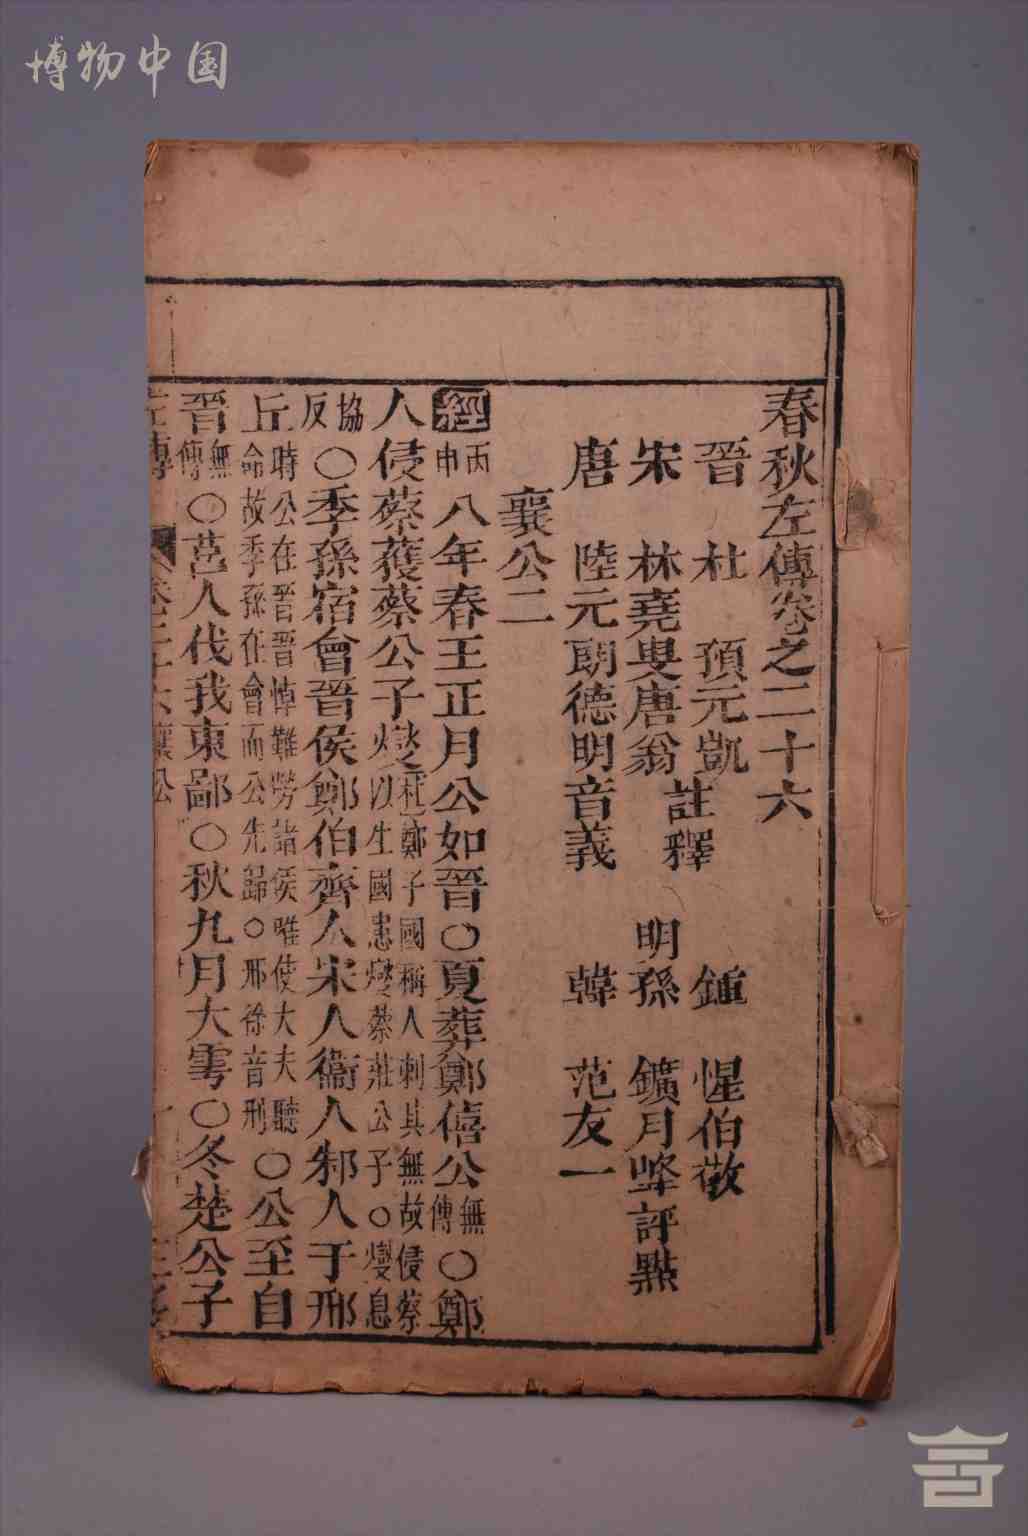 博物中国
春秋左傳卷之二十六
晉 杜 預元凱 註釋 鍾 惺伯敬
宋 林堯叟唐翁 明孫 鑛月峰評點
唐 陸元朗德明音義 韓 范友一
襄公二
經 丙申 八年春王正月公如晉○夏葬鄭僖公 無傳 ○鄭
人侵蔡獲蔡公子燮 杜鄭子國稱人刺其無故侵蔡以生國患燮蔡莊公子○燮息
協反 ○季孫宿會晉侯鄭伯齊人宋人衞人邾人于邢
丘 時公在晉晉悼難勞諸侯唯使大夫聽命故季孫在會而公先歸○邢徐音刑 ○公至自
晉 無傳 ○莒人伐我東鄙○秋九月大雩○冬楚公子
左傳 卷二十六襄公